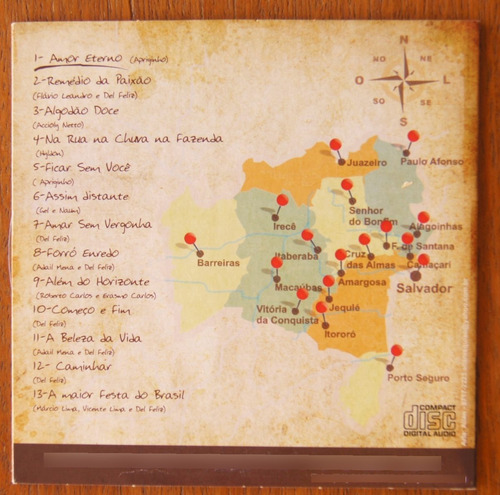 1- Amor Eterno (Apriginho)
2-Remédio da Paixão
(Flávio Leandro e Del Feliz)
3-Algodão Doce
(Accioly Netto)
4-Na Rua na Chuva na Fazenda
(Hyldon)
5-Ficar Sem Você
(Apriginho)
6-Assim distante
(Gel e Naum)
7-Amar Sem Vergonha
(Del Feliz)
8-Forró Enredo
(Adail Mena e Del Feliz)
9-Além do Horizonte
(Roberto Carlos e Erasmo Carlos)
10-Começo e Fim
(Del Feliz)
11-A Beleza da Vida
(Adail Mena e Del Feliz)
12- Caminhar
(Del Feliz)
13-A maior festa do Brasil
(Márcio Lima, Vicente Lima e Del Feliz)
N
NO NE
O L
SO SE
S
Juazeiro
Paulo Afonso
Senhor
do Bonfim
Irecê
Alagoinhas
F. de Santana
Itaberaba
Cruz
das Almas
Camaçari
Barreiras
Salvador
Macaúbas
Amargosa
Vitória
da Conquista
Jequié
Itororó
Porto Seguro
COMPACT
disc
DIGITAL AUDIO